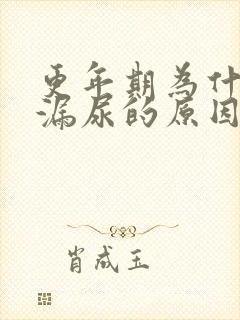 更年期為什
漏尿的原因
肖成玉